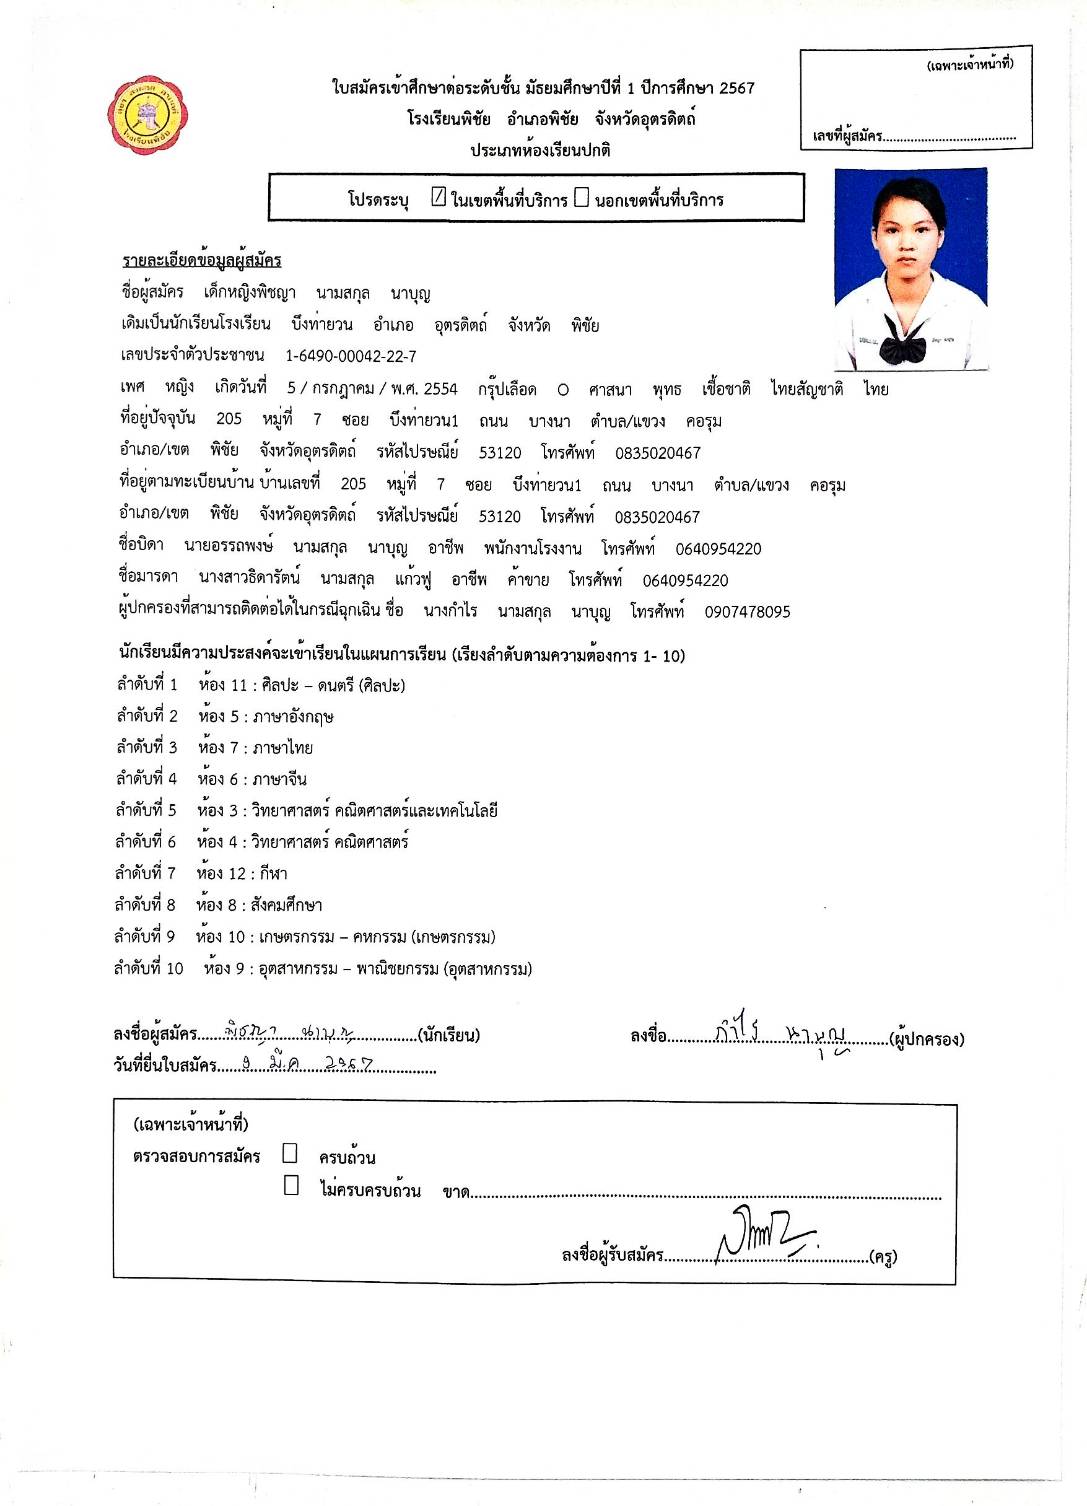 (เฉพาะเจ้าหน้าที่)
เลขที่ผู้สมัคร......................................
ใบสมัครเข้าศึกษาต่อระดับชั้น มัธยมศึกษาปีที่ 1 ปีการศึกษา 2567
โรงเรียนพิชัย อำเภอพิชัย จังหวัดอุตรดิตถ์
ประเภทห้องเรียนปกติ
โปรดระบุ ☑ ในเขตพื้นที่บริการ ☐ นอกเขตพื้นที่บริการ
รายละเอียดข้อมูลผู้สมัคร
ชื่อผู้สมัคร เด็กหญิงพิชญา นามสกุล นาบุญ
เดิมเป็นนักเรียนโรงเรียน บึงท่ายวน อำเภอ อุตรดิตถ์ จังหวัด พิชัย
เลขประจำตัวประชาชน 1-6490-00042-22-7
เพศ หญิง เกิดวันที่ 5 / กรกฎาคม / พ.ศ. 2554 กรุ๊ปเลือด O ศาสนา พุทธ เชื้อชาติ ไทยสัญชาติ ไทย
ที่อยู่ปัจจุบัน 205 หมู่ที่ 7 ซอย บึงท่ายวน1 ถนน บางนา ตำบล/แขวง คอรุม
อำเภอ/เขต พิชัย จังหวัดอุตรดิตถ์ รหัสไปรษณีย์ 53120 โทรศัพท์ 0835020467
ที่อยู่ตามทะเบียนบ้าน บ้านเลขที่ 205 หมู่ที่ 7 ซอย บึงท่ายวน1 ถนน บางนา ตำบล/แขวง คอรุม
อำเภอ/เขต พิชัย จังหวัดอุตรดิตถ์ รหัสไปรษณีย์ 53120 โทรศัพท์ 0835020467
ชื่อบิดา นายอรรถพงษ์ นามสกุล นาบุญ อาชีพ พนักงานโรงงาน โทรศัพท์ 0640954220
ชื่อมารดา นางสาวธิดารัตน์ นามสกุล แก้วฟู อาชีพ ค้าขาย โทรศัพท์ 0640954220
ผู้ปกครองที่สามารถติดต่อได้ในกรณีฉุกเฉิน ชื่อ นางกำไร นามสกุล นาบุญ โทรศัพท์ 0907478095
นักเรียนมีความประสงค์จะเข้าเรียนในแผนการเรียน (เรียงลำดับตามความต้องการ 1- 10)
ลำดับที่ 1 ห้อง 11 : ศิลปะ – ดนตรี (ศิลปะ)
ลำดับที่ 2 ห้อง 5 : ภาษาอังกฤษ
ลำดับที่ 3 ห้อง 7 : ภาษาไทย
ลำดับที่ 4 ห้อง 6 : ภาษาจีน
ลำดับที่ 5 ห้อง 3 : วิทยาศาสตร์ คณิตศาสตร์และเทคโนโลยี
ลำดับที่ 6 ห้อง 4 : วิทยาศาสตร์ คณิตศาสตร์
ลำดับที่ 7 ห้อง 12 : กีฬา
ลำดับที่ 8 ห้อง 8 : สังคมศึกษา
ลำดับที่ 9 ห้อง 10 : เกษตรกรรม – คหกรรม (เกษตรกรรม)
ลำดับที่ 10 ห้อง 9 : อุตสาหกรรม – พาณิชยกรรม (อุตสาหกรรม)
ลงชื่อผู้สมัคร......พิชญา นาบุญ......(นักเรียน) ลงชื่อ......กำไร นาบุญ......(ผู้ปกครอง)
วันที่ยื่นใบสมัคร......9 มี.ค 2567......
(เฉพาะเจ้าหน้าที่)
ตรวจสอบการสมัคร ☐ ครบถ้วน
☐ ไม่ครบครบถ้วน ขาด......
ลงชื่อผู้รับสมัคร......(ครู)